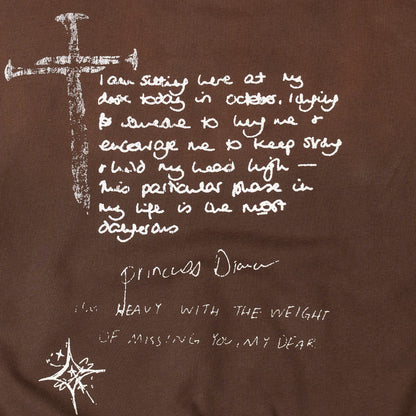 I am sitting here at my
desk today in october, longing
for someone to hug me &
encourage me to keep strong
& hold my head high —
this particular phase in
my life is the most
dangerous
princess Diana
I'M HEAVY WITH THE WEIGHT
OF MISSING YOU, MY DEAR.